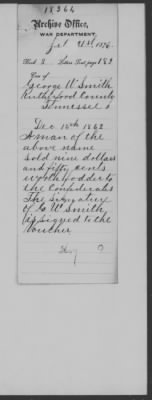 18364
Archive Office,
WAR DEPARTMENT,
1876.
Book 2 Letter page 182
Case of
George W Smith
Rutherford County
Tennessee
Dec 15th 1862
A man of the
above name
sold nine dollars
and fifty cents
worth fodder to
the Confederates
The signature
of G W Smith
is signed to the
Voucher